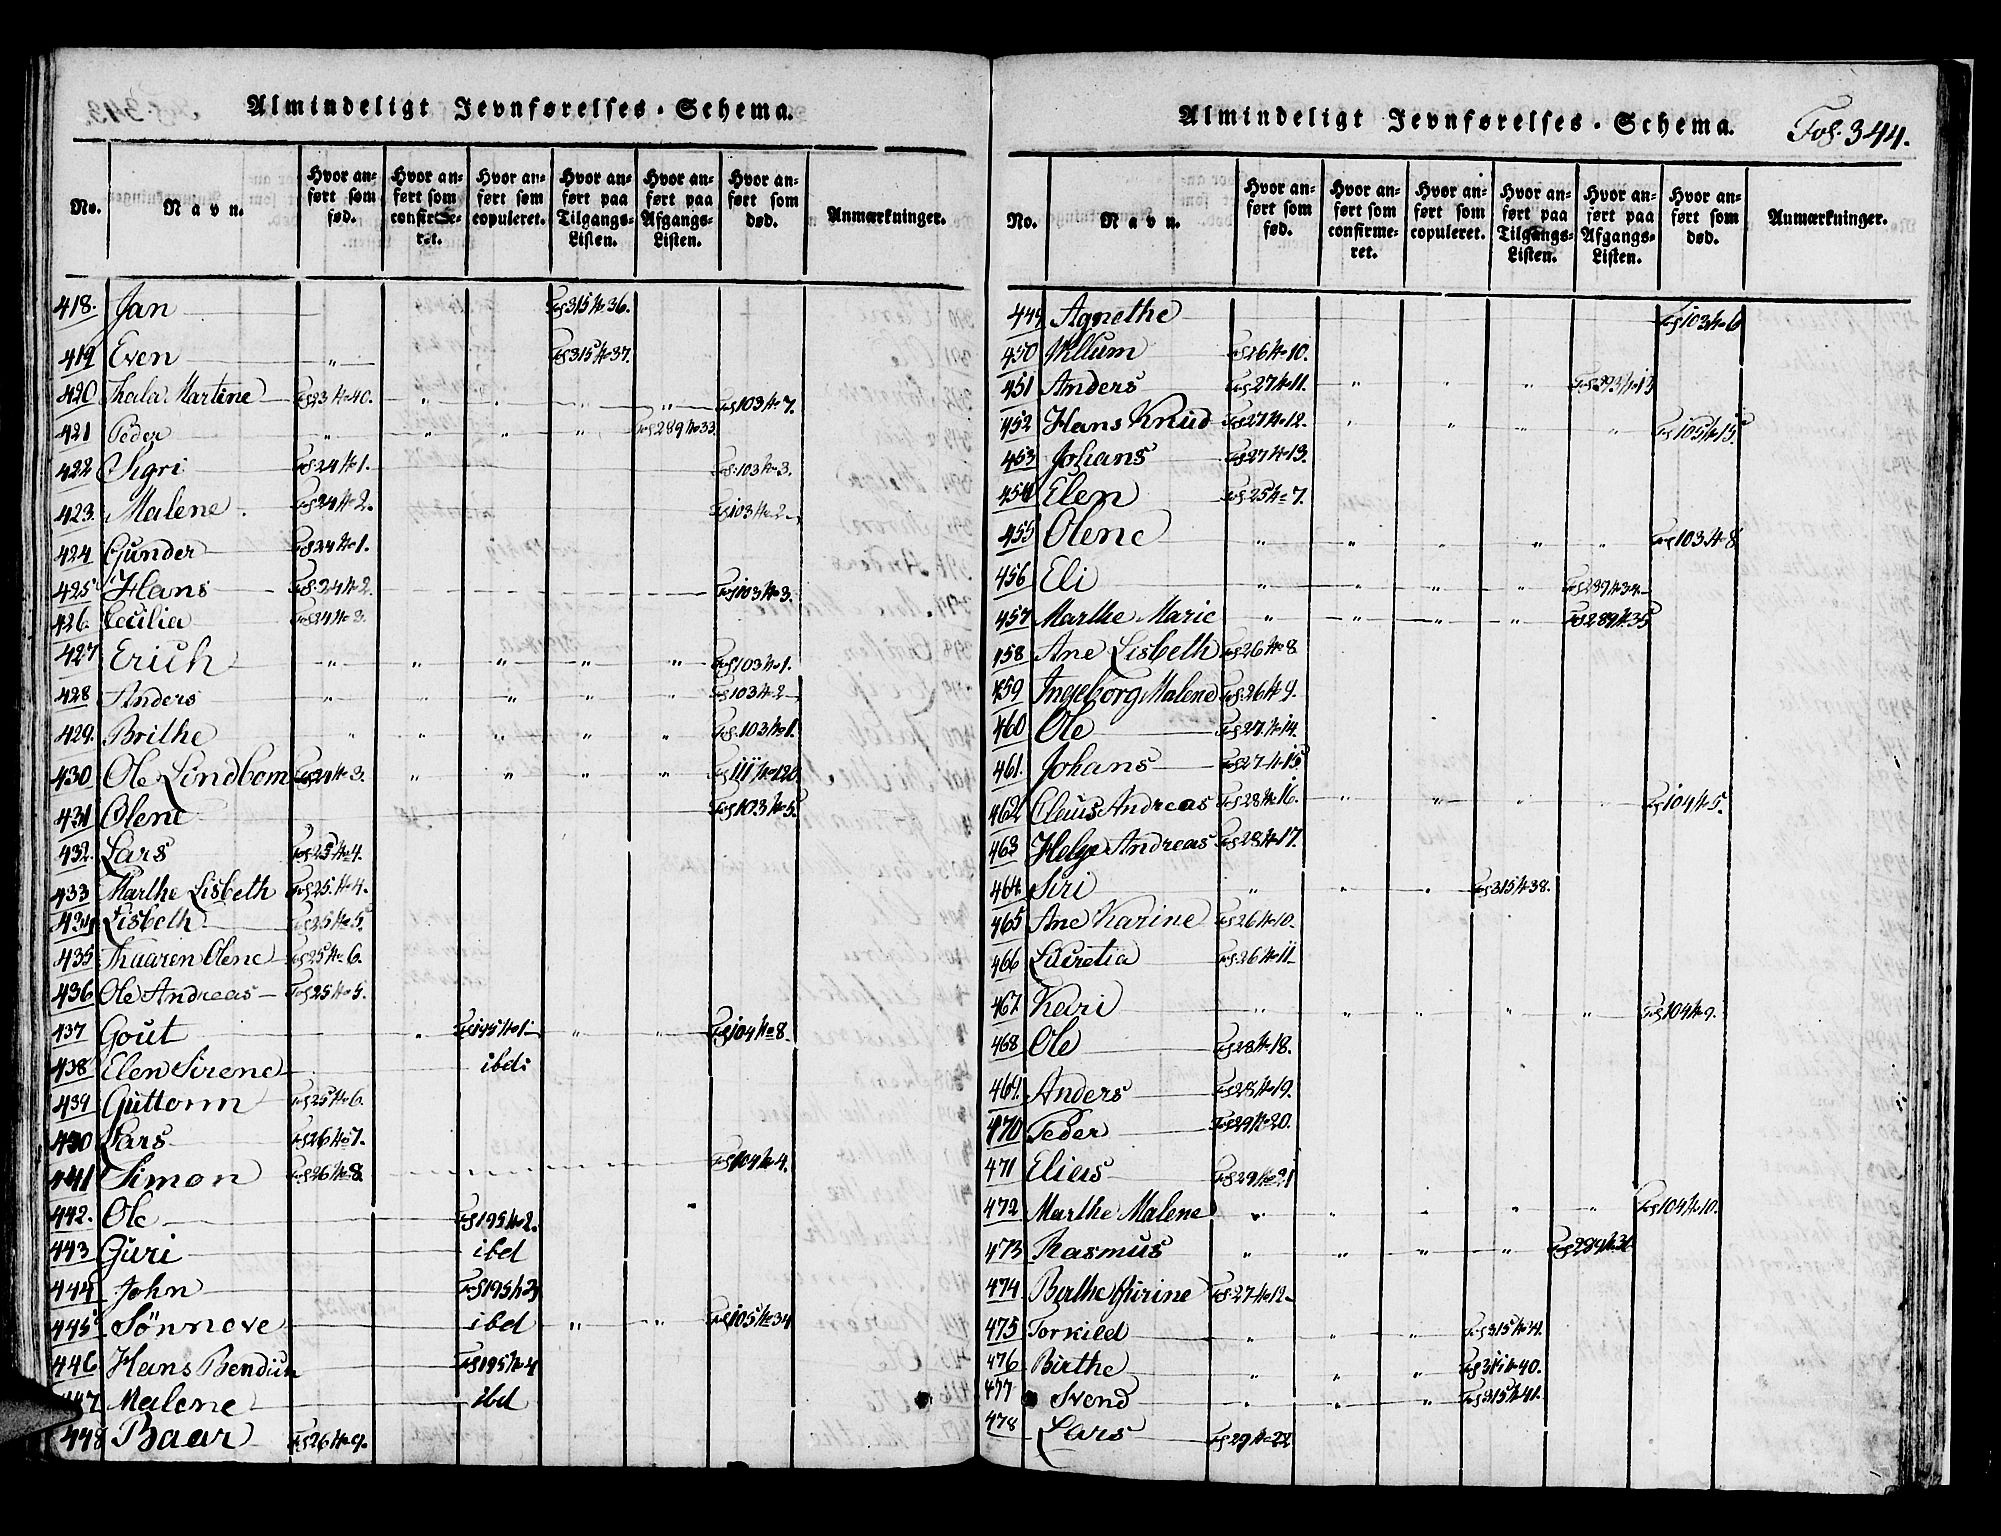 Almindeligt Jevnførelses-Schema.
No. Navn. Hvor anført som fød. Hvor anført som confirmeret. Hvor anført som copuleret. Hvor anført paa Tilgangs-Listen. Hvor anført paa Afgangs-Listen. Hvor anført som død. Anmærkninger.
418. Jan Fol 315 No 36.
419 Even " Fol 315 No 37.
420 Martine Fol 23 No 40. " " " " Fol 103 No 7.
421 Peder " " " " Fol 289 No 33.
422 Sigri Fol 24 No 1. Fol. 103 No 3.
423. Malene Fol 24 No 2. Fol 103 No 2
424 Gunder Fol 24 No 1.
425 Hans Fol. 24 No 2. Fol 103 No 3.
426. Cecilia Fol 24 No 3.
427 Erich " " " " " Fol 103 No 1.
428 Anders " " " " " Fol 103 No 2
429. Brithe " " " " " Fol. 103 No 1.
430 Ole Lindbom Fol 24 No 3. " " " " Fol 111 No 120
431 Olene Fol 103 No 5.
432. Lars Fol 25 No 4.
433 Marthe Lisbeth Fol 25 No 4.
434 Lisbeth Fol 25 No 5.
435 Olene Fol 25 No 6.
436 Ole Andreas Fol 25 No 5.
437 Gout " Fol 195 No 1. " " Fol 104 No 8.
438 Elen Sirene ibd:
439 Guttorm Fol 25 No 6.
430 Lars Fol 26 No 7.
441 Simon Fol 26 No 8. Fol 104 No 4.
442. Ole Fol 195 No 2.
443 Guri ibd
444 John Fol 195 No 3
445 Sönnove ibd " " Fol 105 No 34
446 Hans Fol 195 No 4
447 Malene ibd
448 Baar Fol 26 No 9.
Almindeligt Jevnførelses-Schema. Fol. 344.
No. Navn. Hvor anført som fød. Hvor anført som confirmeret. Hvor anført som copuleret. Hvor anført paa Tilgangs-Listen. Hvor anført paa Afgangs-Listen. Hvor anført som død. Anmærkninger.
449 Agnethe Fol 103 No 6
450 Villum Fol 26 No 10.
451 Anders Fol 27 No 11. " " "
452 Hans Knud Fol 27 No 12. " " " " Fol 105 No 15.
453 Johans Fol 27 No 13.
454 Elen Fol 25 No 7.
455 Olene " " " " " Fol 103 No 8
456 Eli " " " " Fol 289 No 34.
457 Marthe Marie " " " " Fol 289 No 35
458 Ane Lisbeth Fol 26 No 8.
459 Ingeborg Malene Fol 26 No 9.
460 Ole Fol 27 No 14.
461. Johans Fol 27 No 15
462 Claus Andreas Fol 28 No 16. " " " " Fol 104 No 5.
463 Helge Andreas Fol 28 No 17.
464. Siri " " " Fol 315 No 38.
465 Ane Karine Fol 26 No 10.
466 Lucretia Fol 26 No 11
467. Kari " " " " " Fol 104 No 9.
468 Ole Fol 28 No 18.
469. Anders Fol 28 No 19.
470 Peder Fol 29 No 20.
471 Elias Fol 29 No 21
472 Marthe Malene " " " " Fol 104 No 10.
473 Rasmus " " " "
474 Berthe Fol 27 No 12
475 Torkild " " "
476 Birthe " " " Fol 315 No 40.
477 Svend " " " Fol 315 No 41.
478 Lars Fol 29 No 22